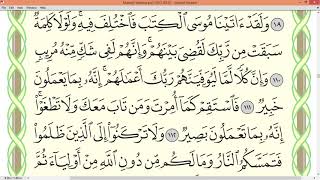 ١٠٩ وَلَقَدۡ ءَاتَيۡنَا مُوسَى ٱلۡكِتَٰبَ فَٱخۡتُلِفَ فِيهِۚ وَلَوۡلَا كَلِمَةٞ
سَبَقَتۡ مِن رَّبِّكَ لَقُضِيَ بَيۡنَهُمۡۚ وَإِنَّهُمۡ لَفِي شَكّٖ مِّنۡهُ مُرِيبٖ
١١٠ وَإِنَّ كُلّٗا لَّمَّا لَيُوَفِّيَنَّهُمۡ رَبُّكَ أَعۡمَٰلَهُمۡۚ إِنَّهُۥ بِمَا يَعۡمَلُونَ
خَبِيرٞ ١١١ فَٱسۡتَقِمۡ كَمَآ أُمِرۡتَ وَمَن تَابَ مَعَكَ وَلَا تَطۡغَوۡاْۚ
إِنَّهُۥ بِمَا تَعۡمَلُونَ بَصِيرٞ ١١٢ وَلَا تَرۡكَنُوٓاْ إِلَى ٱلَّذِينَ ظَلَمُواْ
فَتَمَسَّكُمُ ٱلنَّارُ وَمَا لَكُم مِّن دُونِ ٱللَّهِ مِنۡ أَوۡلِيَآءَ ثُمَّ